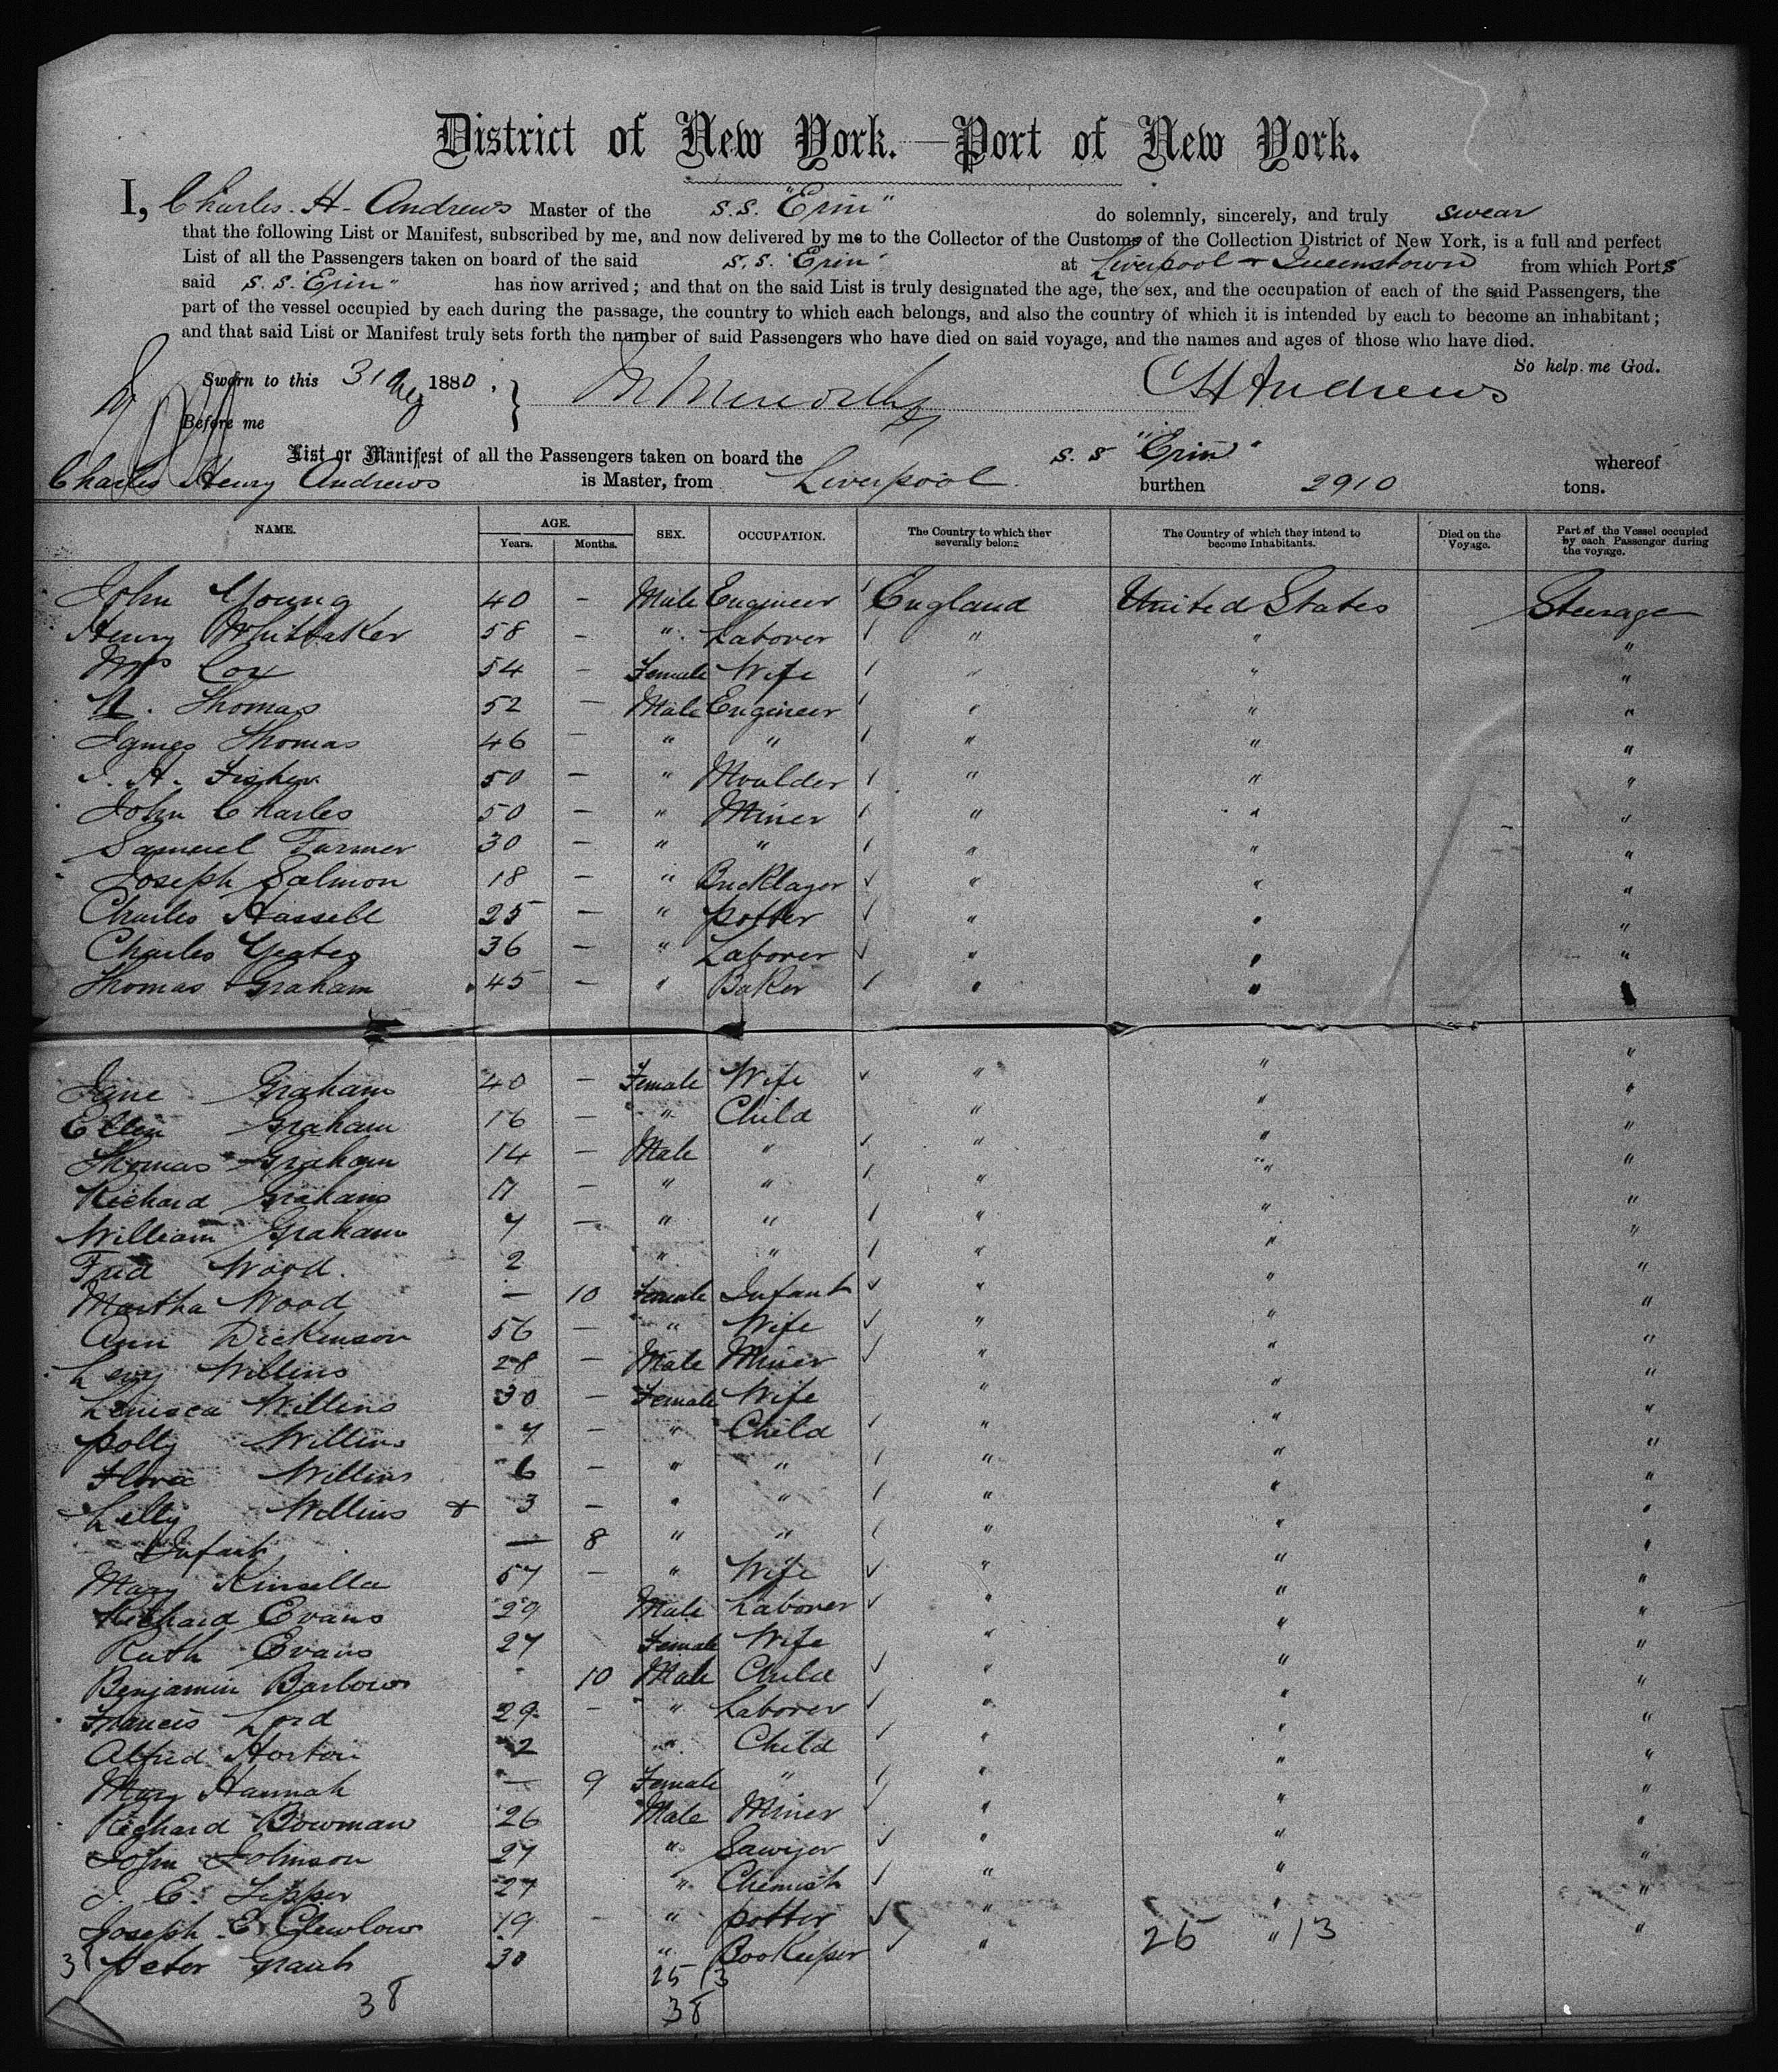 District of New York.—Port of New York.
I, Charles. H- Andrews Master of the S.S. "Erin" do solemnly, sincerely, and truly swear
that the following List or Manifest, subscribed by me, and now delivered by me to the Collector of the Customs of the Collection District of New York, is a full and perfect
List of all the Passengers taken on board of the said S.S. "Erin" at Liverpool & Queenstown from which Ports
said S.S. "Erin" has now arrived; and that on the said List is truly designated the age, the sex, and the occupation of each of the said Passengers, the
part of the vessel occupied by each during the passage, the country to which each belongs, and also the country of which it is intended by each to become an inhabitant;
and that said List or Manifest truly sets forth the number of said Passengers who have died on said voyage, and the names and ages of those who have died.
So help me God.
Sworn to this 31 1880. CH Andrews
Before me
List or Manifest of all the Passengers taken on board the S.S "Erin" whereof
Charles Henry Andrews is Master, from Liverpool. burthen 2910 tons.
NAME. AGE. SEX. OCCUPATION. The Country to which they severally belong. The Country of which they intend to become Inhabitants. Died on the Voyage. Part of the Vessel occupied by each Passenger during the voyage.
Years. Months.
John Young 40 — Male Engineer England United States Steerage
Henry Whittaker 58 — " Laborer " " "
Mrs Cox 54 — Female Wife " " "
Thomas 52 — Male Engineer " " "
James Thomas 46 — " " " " "
Fisher 50 — " Moulder " " "
John Charles 50 — " Miner " " "
Samuel Farmer 30 — " " " " "
Joseph Salmon 18 — " Bricklayer " " "
Charles Hassell 25 — " potter " " "
Charles Yeates 36 — " Laborer " " "
Thomas Graham 45 — " Baker " " "
Jane Graham 40 — Female Wife " " "
Ellen Graham 16 — " Child " " "
Thomas Graham 14 — Male " " " "
Richard Graham 11 — " " " " "
William Graham 7 — " " " " "
Fred Wood. 2 " " " " "
Martha Wood — 10 Female Infant " " "
Ann Dickenson 56 — " Wife " " "
Levy Willins 28 — Male Miner " " "
Willins 30 — Female Wife " " "
Polly Willins 7 — " Child " " "
Flora Willins 6 — " " " " "
Lilly Willins 3 — " " " " "
Infant — 8 " " " " "
Mary Kinsella 57 — " Wife " " "
Richard Evans 29 Male Laborer " " "
Ruth Evans 27 Female Wife " " "
Benjamin Barlow 10 Male Child " " "
Francis Lord 29 — " Laborer " " "
Alfred Horton 2 " Child " " "
Mary Hannah — 9 Female " " " "
Richard Bowman 26 Male Miner " " "
John Johnson 27 " Sawyer " " "
J. E. 27 " Chemist " " "
Joseph E Clewlow 19 — " potter " " "
38 Peter Grant 30 " Bookeeper " 26 " 13 "
25 13
38 38